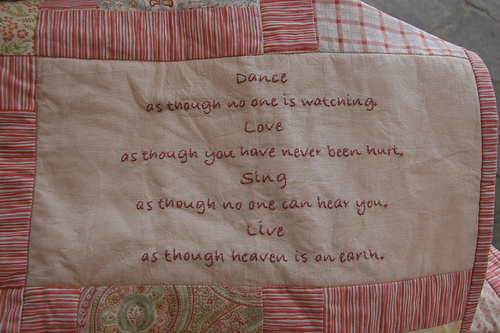 Dance
as though no one is watching.
Love
as though you have never been hurt.
Sing
as though no one can hear you.
Live
as though heaven is on earth.